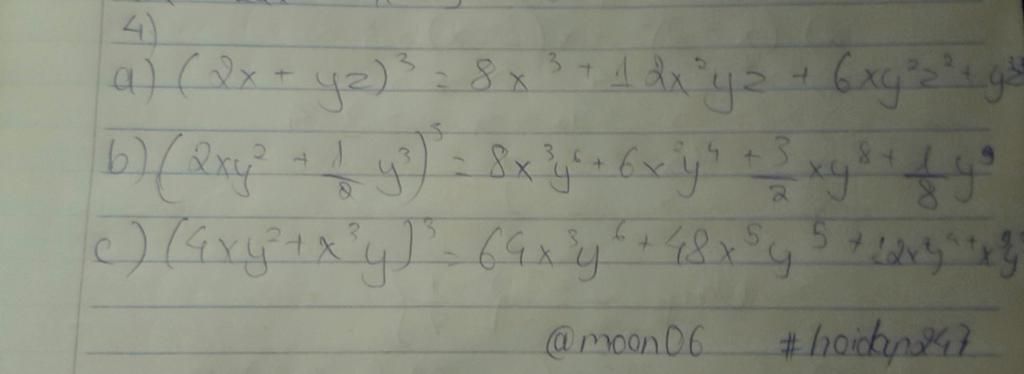 4)
a) (2x + yz)³ = 8x³ + 12x²yz + 6xy²z² + y³z³
b) (2xy² + 1/2 y³)³ = 8x³y⁶ + 6x²y⁴ + 3/2 xy⁸ + 1/8 y⁹
c) (4xy² + x³y)³ = 64x³y⁶ + 48x⁵y⁵ + 12x
@moon06 #hoidap247